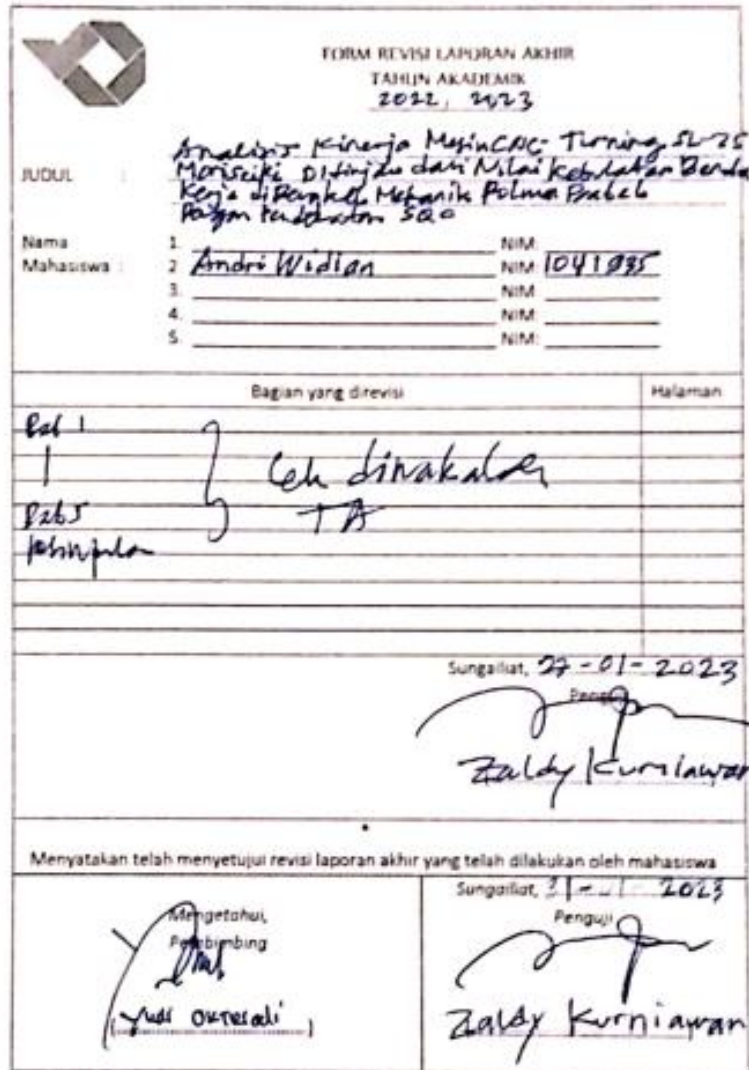 FORM REVISI LAPORAN AKHIR
TAHUN AKADEMIK
2022, 2023
JUDUL :
Analisis Kinerja Mesin CNC Turning SL-25
Moriseiki Ditinjau dari Nilai Kebulatan Benda
Kerja di Bengkel Mekanik Polman Babel
Nama
Mahasiswa :
1. NIM:
2 Andri Widian NIM: 1041
3. NIM:
4. NIM:
5. NIM:
Bagian yang direvisi Halaman
Bab 1
Bab 5
TA
Sungailiat, 27-01-2023
Penguji
Zaldy Kurniawan
Menyatakan telah menyetujui revisi laporan akhir yang telah dilakukan oleh mahasiswa
Mengetahui,
Pembimbing
Sungailiat, 31 2023
Penguji
Zaldy Kurniawan